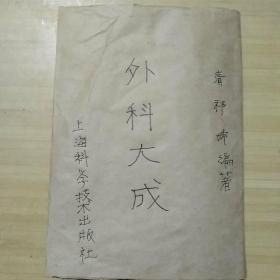 祁 編著
外科大成
上海科学技术出版社